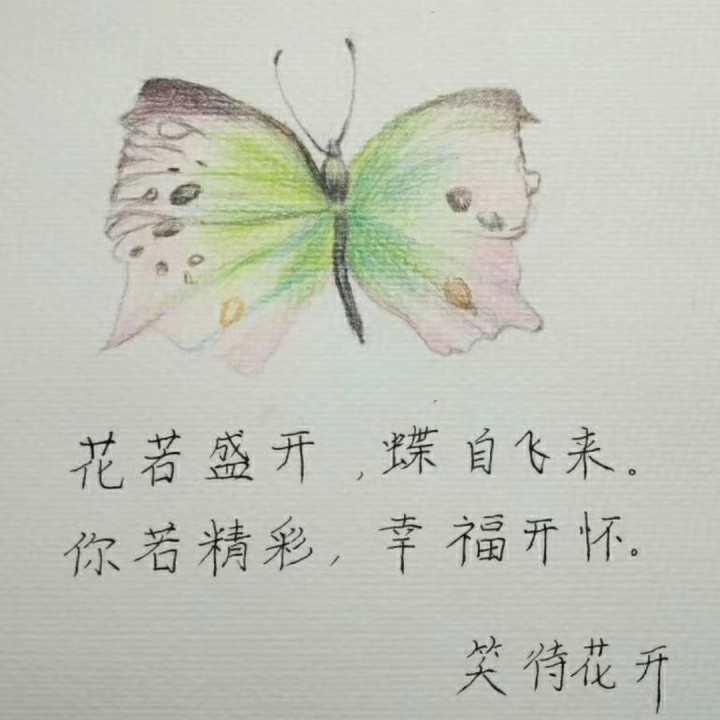 花若盛开,蝶自飞来。
你若精彩,幸福开怀。
笑待花开